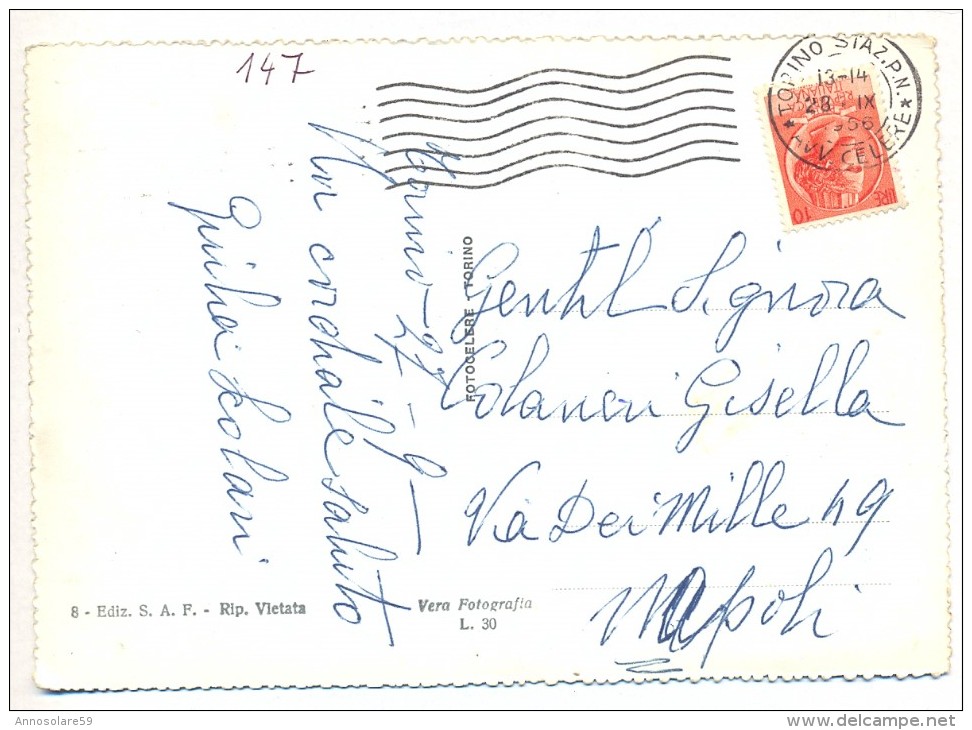 147
TORINO STAZ. P.N.
13-14
28 IX
CELERE
REPUBBLICA
ITALIANA
LIRE 10
Torino - 27 - 9 -
Un cordiale saluto
FOTOCELERE - TORINO
Gentil Signora
Colaneri Gisella
Via Dei Mille 49
Napoli
8 - Ediz. S. A. F. - Rip. Vietata
Vera Fotografia
L. 30
Annosolare59
www.delcampe.net